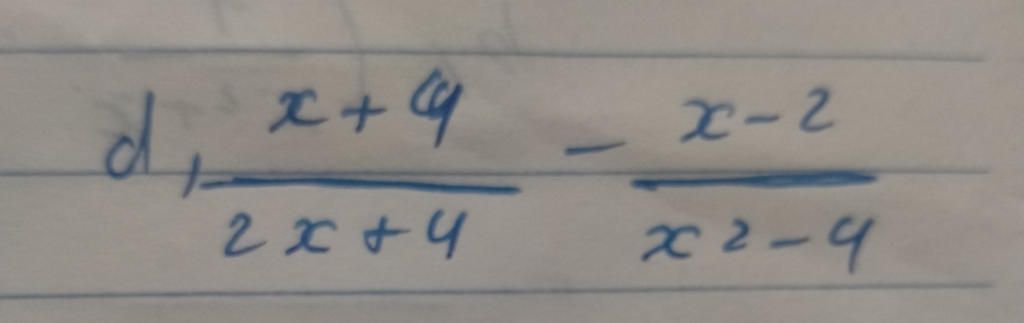 d, x + 4 / 2x + 4 - x - 2 / x2 - 4